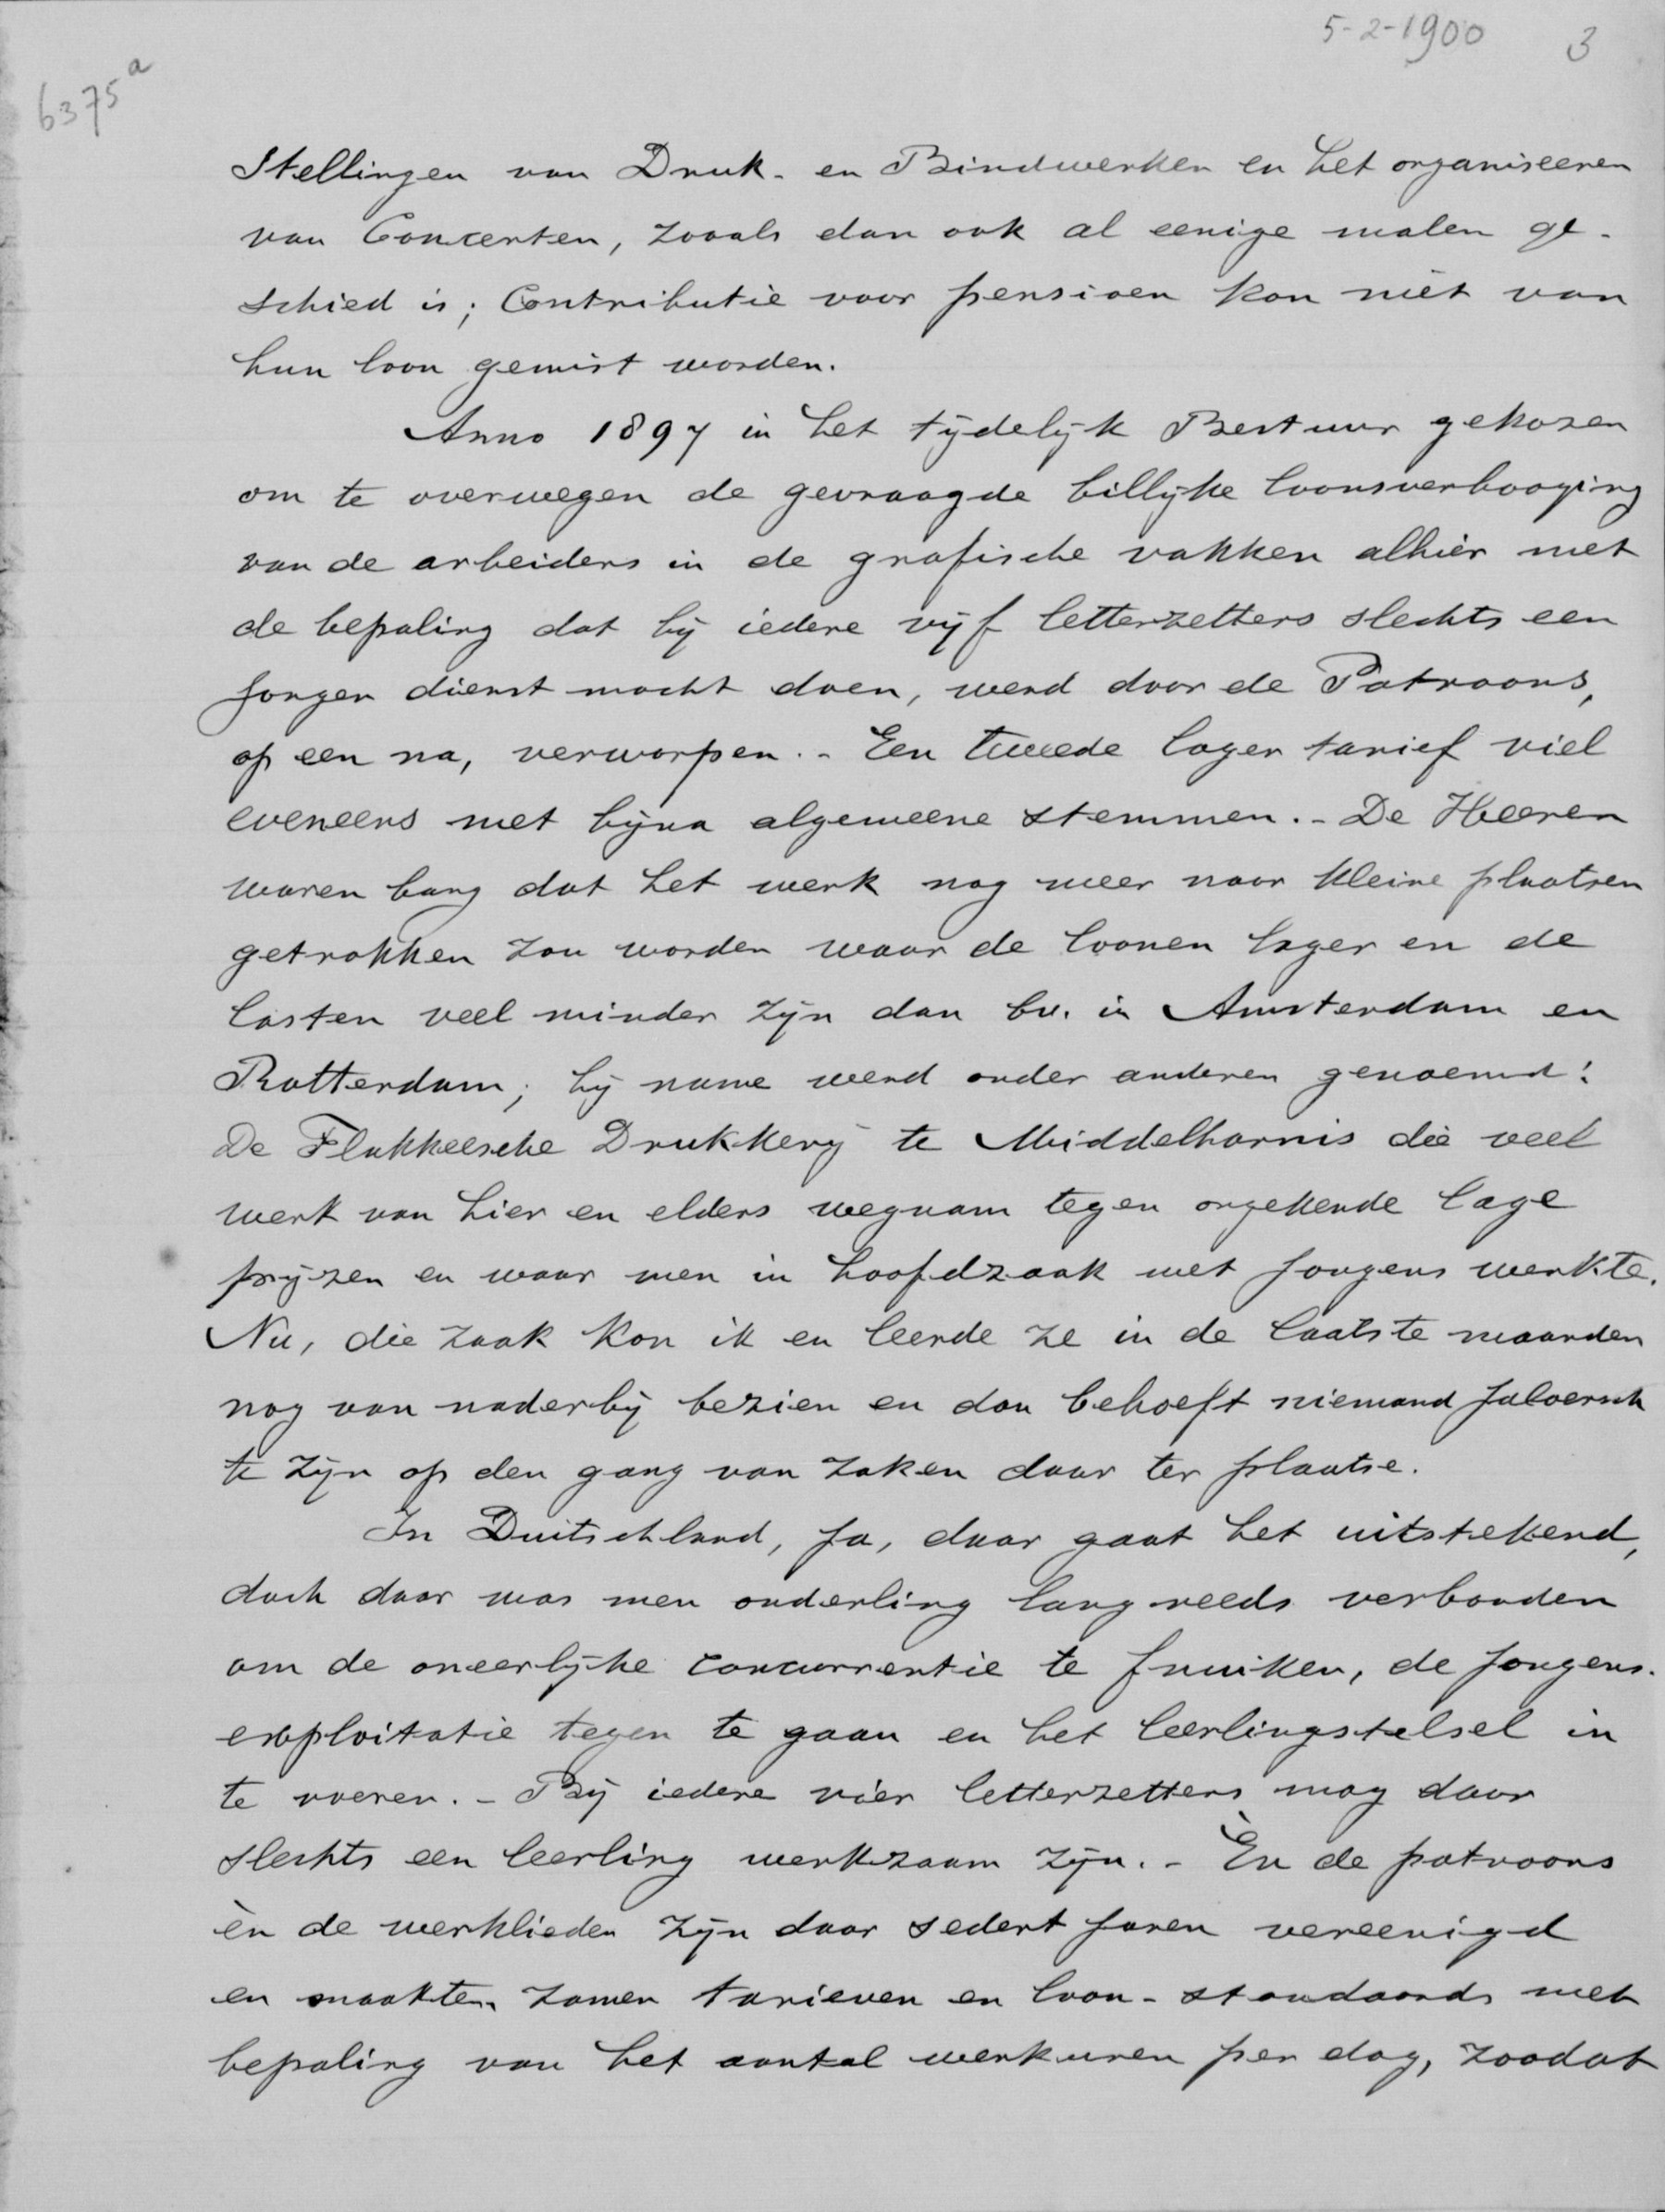 5-2-1900 3
6375a
Stellingen van Druk- en Bindwerken en het organiseeren
van Concerten, zooals dan ook al eenige malen ge-
schied is; Contributie voor pensioen kon niet van
hun loon gemist worden.
Anno 1897 in het tijdelijk Bestuur gekozen
om te overwegen de gevraagde billijke loonsverhooging
van de arbeiders in de grafische vakken alhier met
de bepaling dat bij iedere vijf letterzetters slechts een
jongen dienst mocht doen, werd door de Patroons,
op een na, verworpen. - Een tweede lager tarief viel
eveneens met bijna algemeene stemmen. - De Heeren
waren bang dat het werk nog meer naar kleine plaatsen
getrokken zou worden waar de loonen lager en de
lasten veel minder zijn dan bv. in Amsterdam en
Rotterdam; bij name werd onder anderen genoemd:
De Flakkeesche Drukkerij te Middelharnis die veel
werk van hier en elders wegnam tegen ongekende lage
prijzen en waar men in hoofdzaak met jongens werkte.
Nu, die zaak kon ik en leerde ze in de laatste maanden
nog van naderbij bezien en dan behoeft niemand jaloersch
te zijn op den gang van zaken daar ter plaatse.
In Duitschland, ja, daar gaat het uitstekend,
doch daar was men onderling lang reeds verbonden
om de oneerlijke concurrentie te fnuiken, de jongens-
exploitatie tegen te gaan en het leerlingstelsel in
te voeren. - Bij iedere vier letterzetters mag daar
slechts een leerling werkzaam zijn. - Èn de patroons
èn de werklieden zijn daar sedert jaren vereenigd
en maakten zamen tarieven en loon-standaards met
bepaling van het aantal werkuren per dag, zoodat